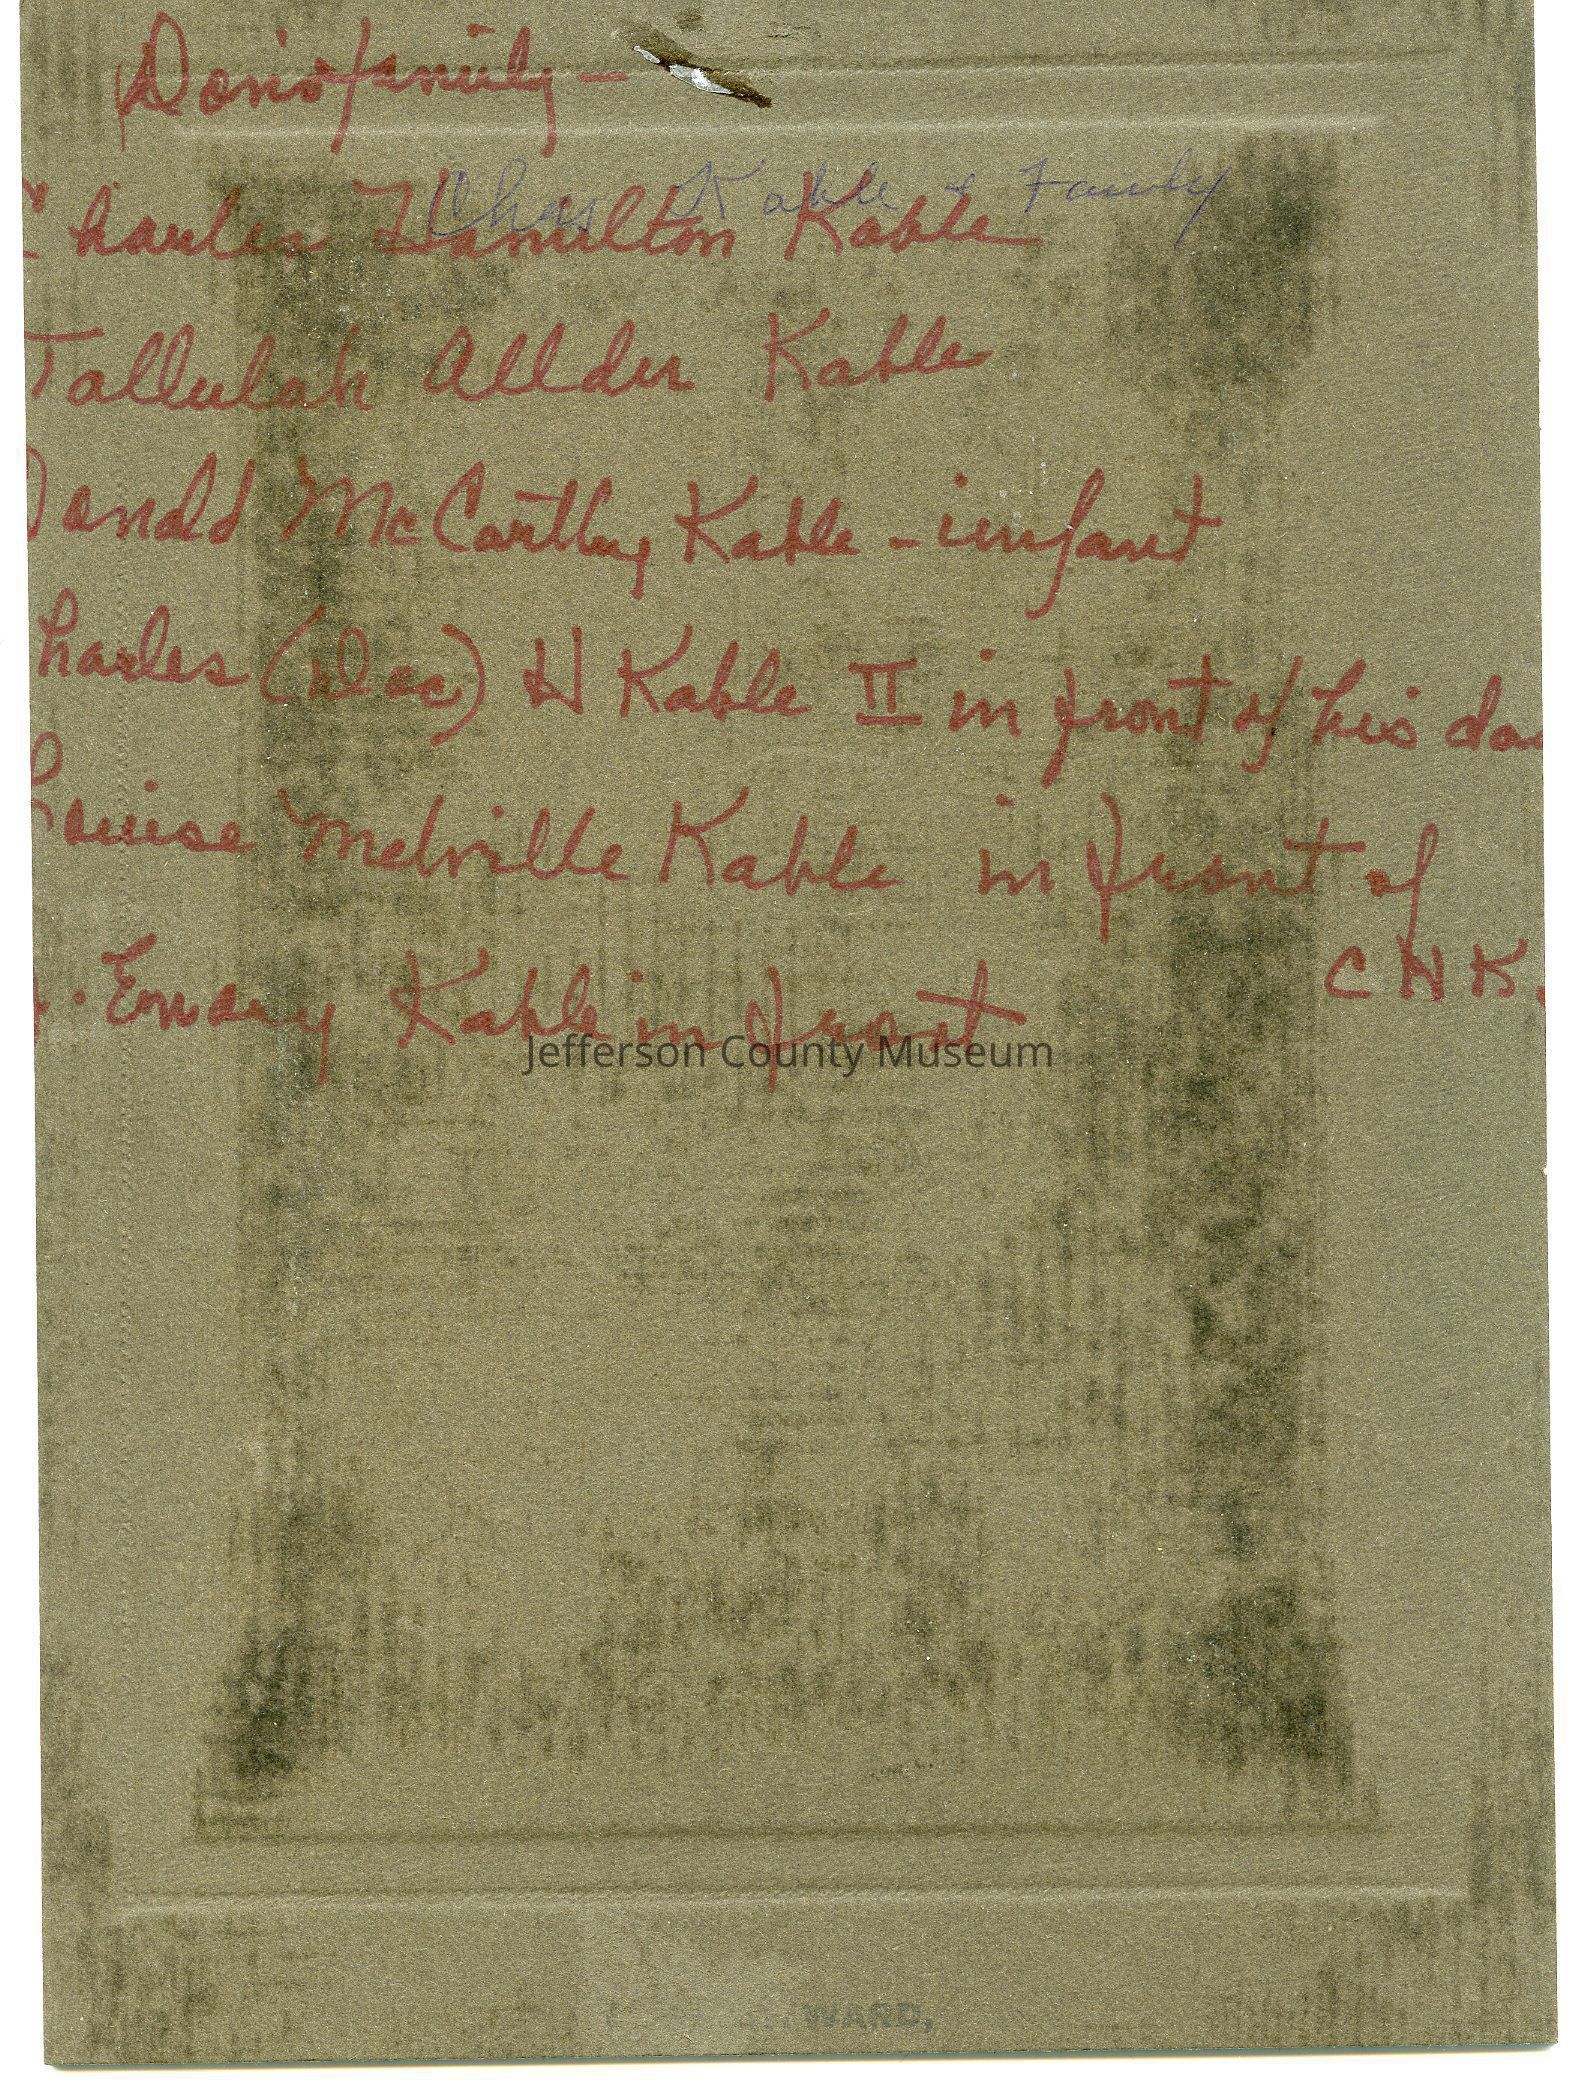 Don's family —
Chas Kable & Family
Charles Hamilton Kable
Tallulah Allder Kable
Donald McCarthy Kable - infant
Charles (Doc) H Kable II in front of his dad
Louise Melville Kable in front of
C H K.
. Emory Kable in front
Jefferson County Museum
WARD,